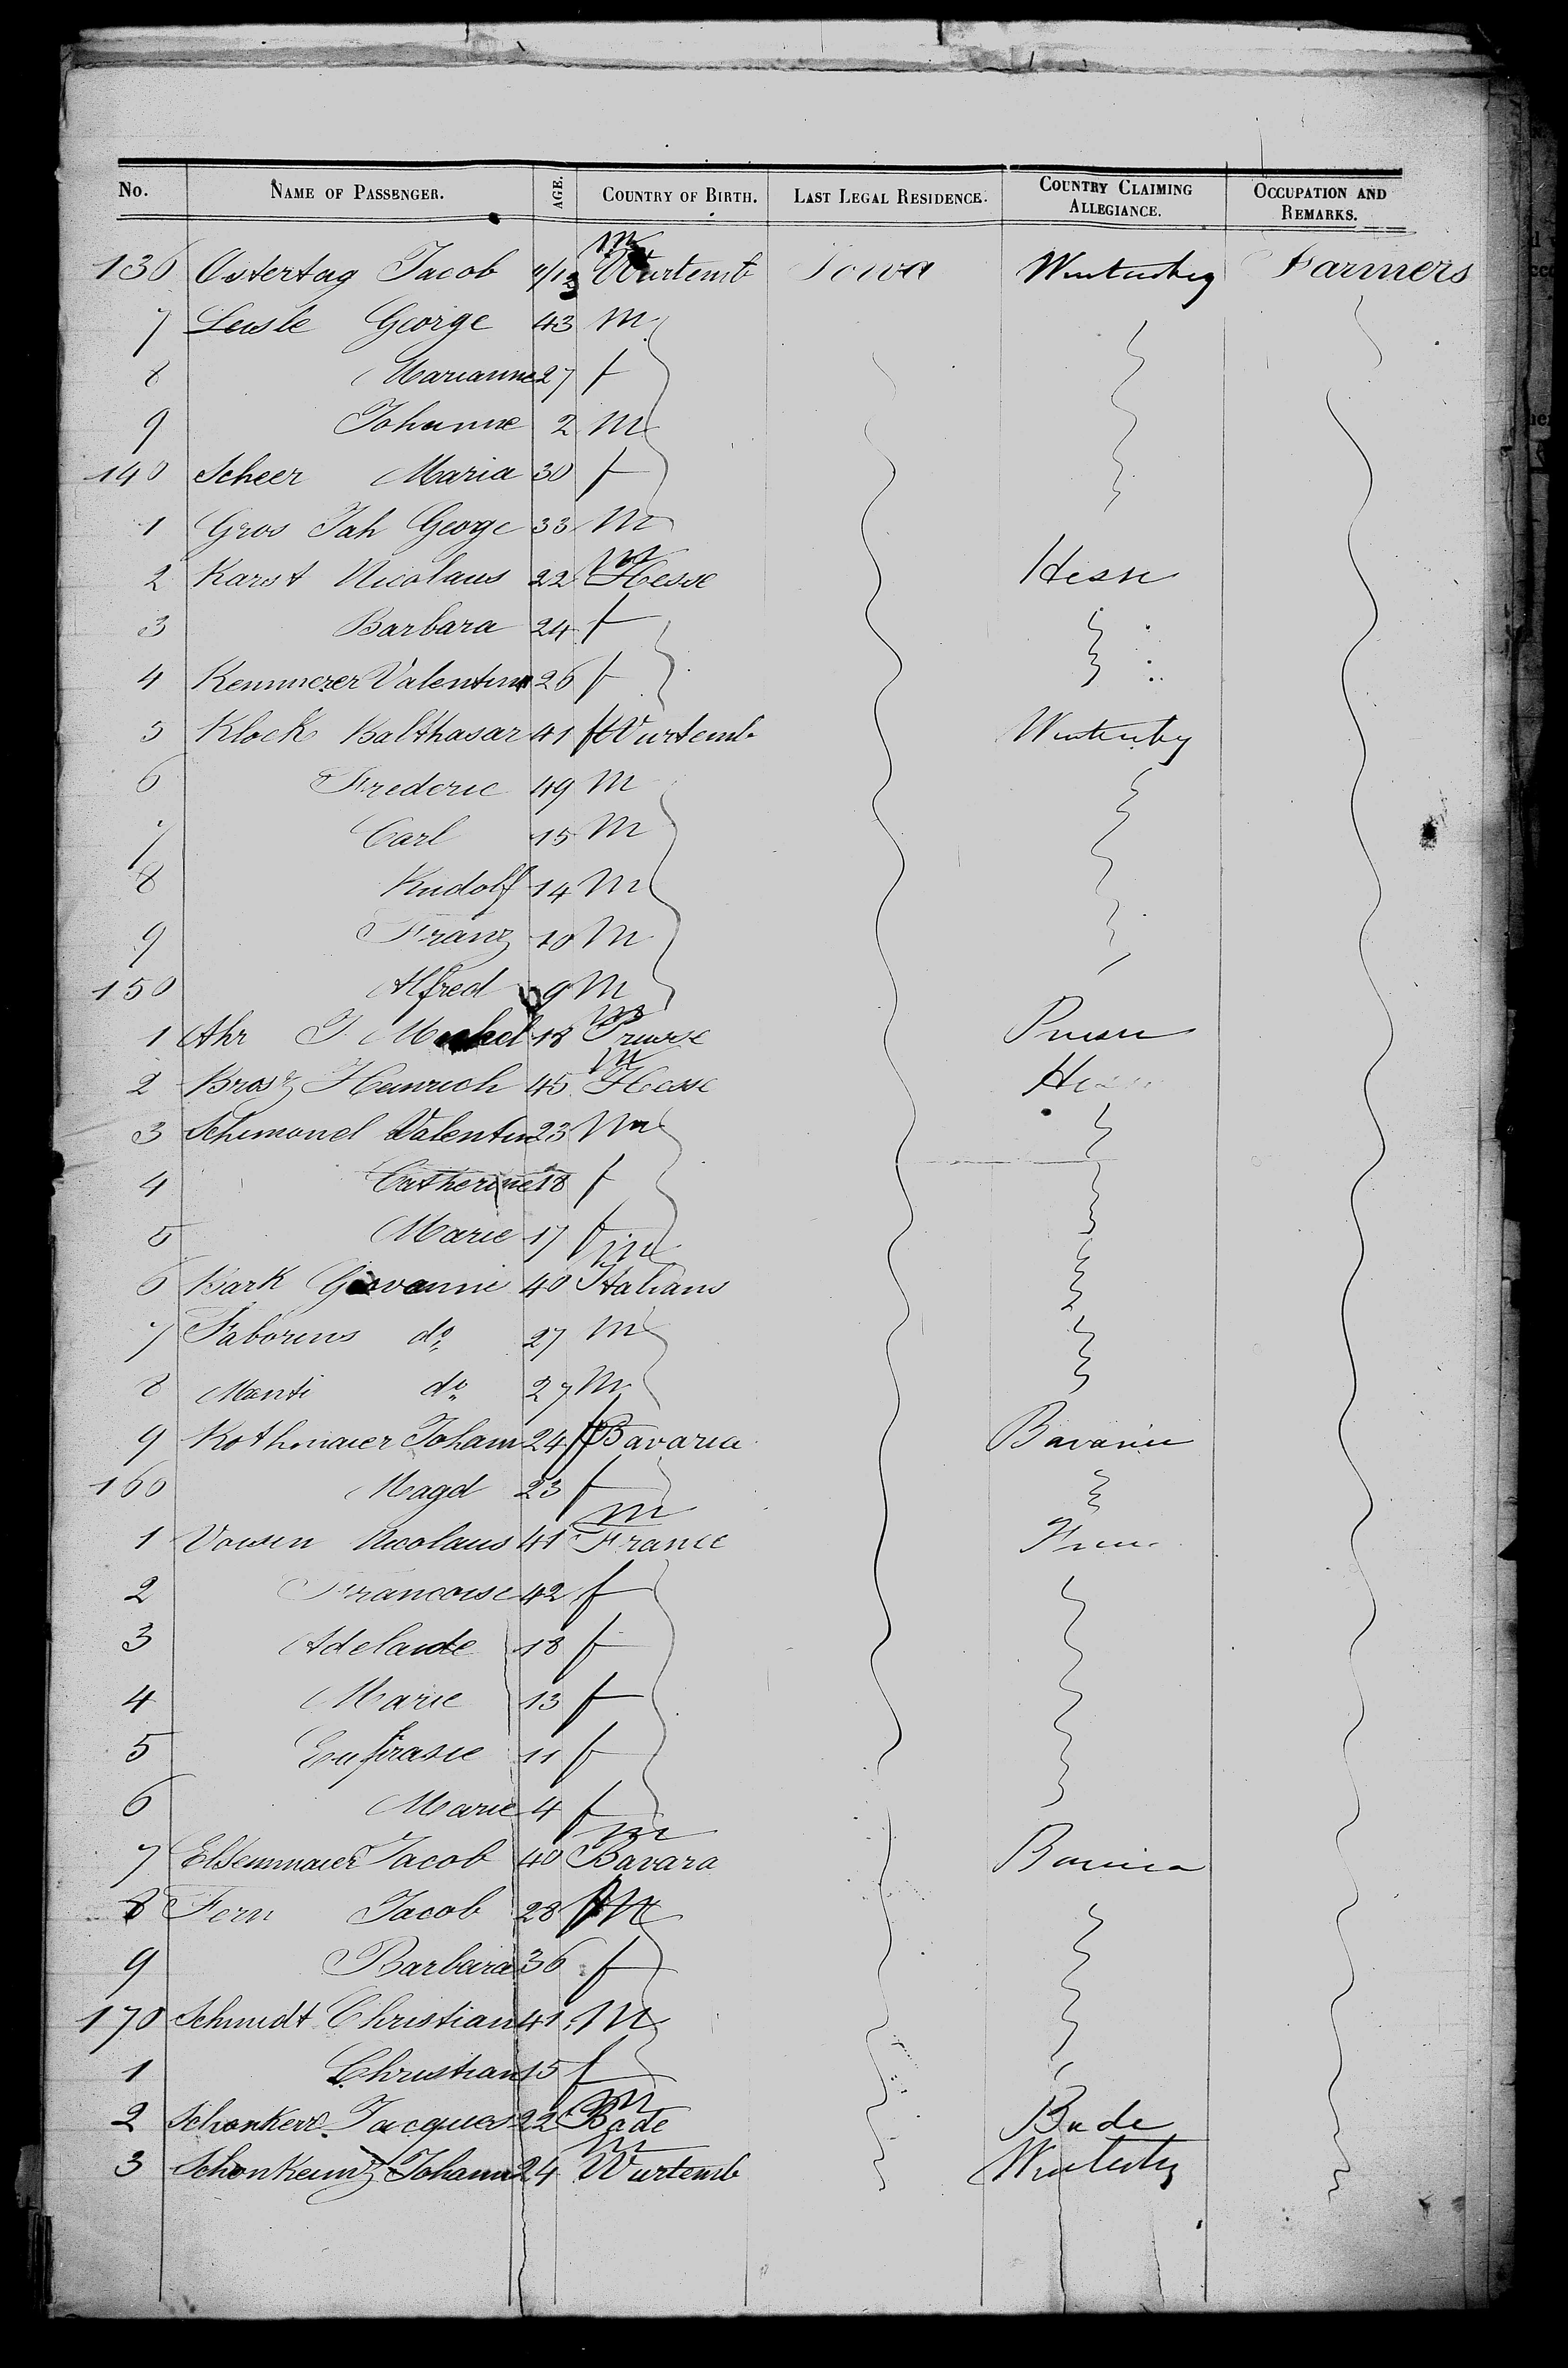 No. NAME OF PASSENGER. AGE. COUNTRY OF BIRTH. LAST LEGAL RESIDENCE. COUNTRY CLAIMING ALLEGIANCE. OCCUPATION AND REMARKS.
136 Ostertag Jacob m Wurtemb Iowa Wurtemberg Farmers
7 Leusle George 43 m
8 Marianne 27 f
9 Johanne 2 m
140 Scheer Maria 30 f
1 Gros Jah George 33 m
2 Karst Nicolaus 22 m Hesse Hesse
3 Barbara 24 f
4 Kemmerer Valentine 26 f
5 Klock Balthasar 41 f Wurtemb
6 Frederic 49 m
7 Carl 15 m
8 Rudolf 14 m
9 Franz 10 m
150 Alfred 9 m
1 Ahr J Michel 18 m Prusse Prusse
2 Heinrich 45 m Hesse
3 Schimonel Valentin 23 m
4 Catherine 18 f
5 Marie 17 f
6 Bark Giovanni 40 m Italians
7 Faborins do 27 m
8 Monti do 27 m
9 Rothmaier Johann 24 Bavaria Bavaria
160 Magd 23 f
1 Nicolaus 41 m France
2 Francoise 42 f
3 Adelaide 18 f
4 Marie 13 f
5 Eufrasie 11 f
6 Marie 4 f
7 Jacob 40 m Bavara
8 Fern Jacob 28 m
9 Barbara 36 f
170 Schmidt Christian 41 m
1 Christian 15 f
2 Jacques 22 m Bade Bade
3 Johann 24 m Wurtemb